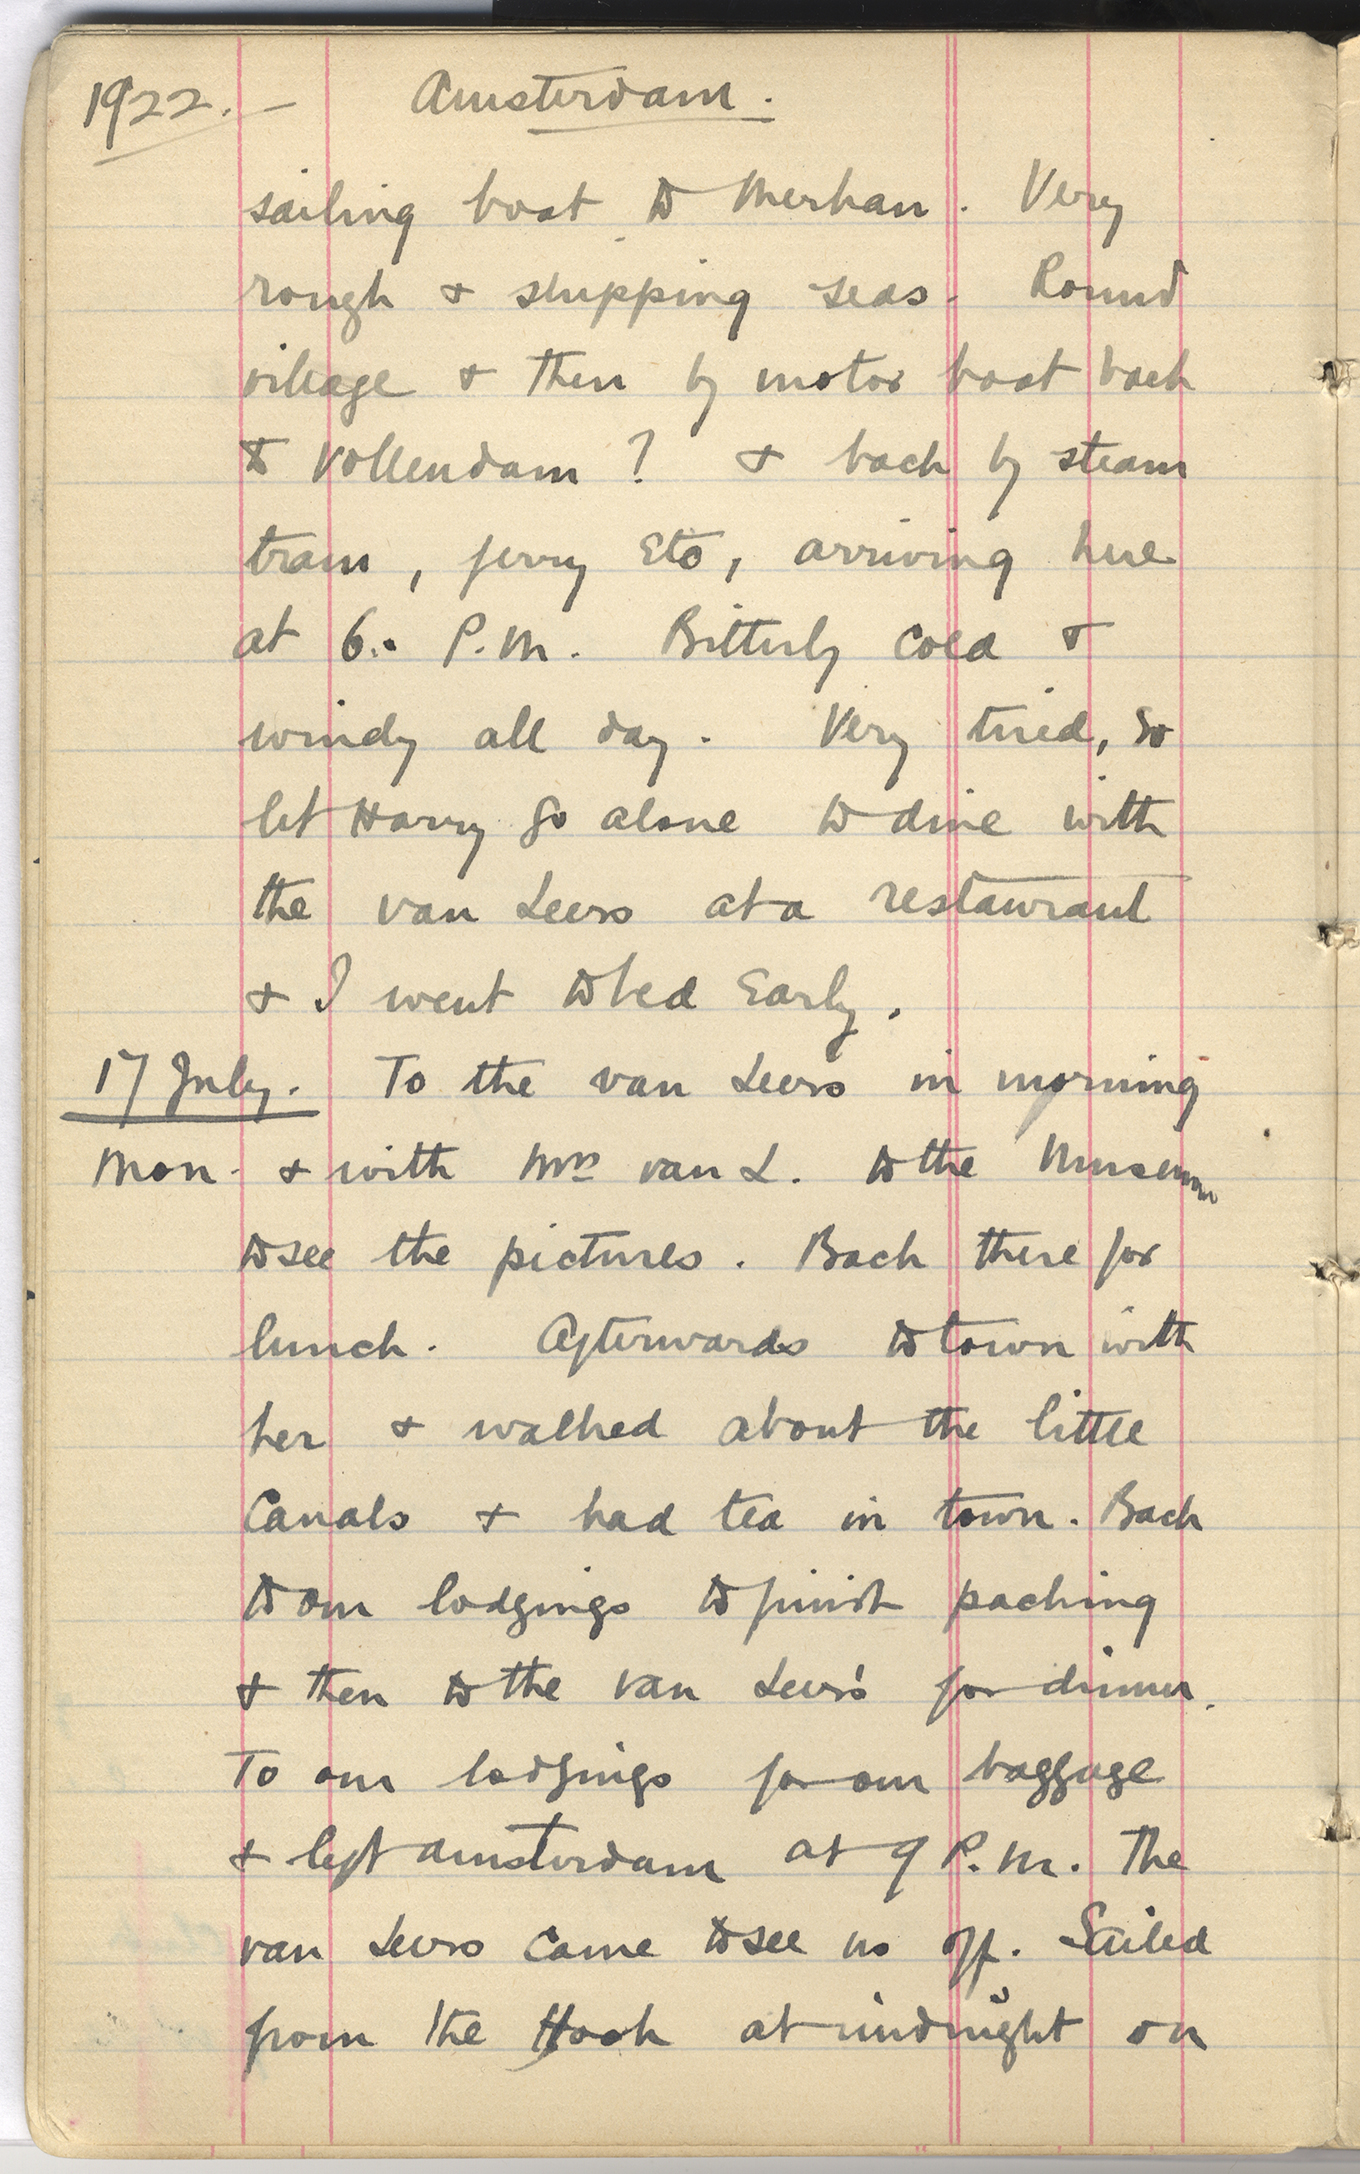 1922. - Amsterdam.
sailing boat to Merkan. Very
rough & shipping seas. Round
village & then by motor boat back
to Vollendam? & back by steam
tram, ferry Etc, arriving here
at 6. P.M. Bitterly cold &
windy all day. Very tired, so
let Harry go alone to dine with
the van Leers at a restaurant
& I went to bed Early.
17 July. To the van Leers in morning
Mon. & with Mrs van L. to the Museum
to see the pictures. Back there for
lunch. Afterwards to town with
her & walked about the little
Canals & had tea in town. Back
to our lodgings to finish packing
& then to the van Leers' for dinner.
To our lodgings for our baggage
& left Amsterdam at 9 P.M. The
van Leers came to see us off. Sailed
from the Hook at midnight on